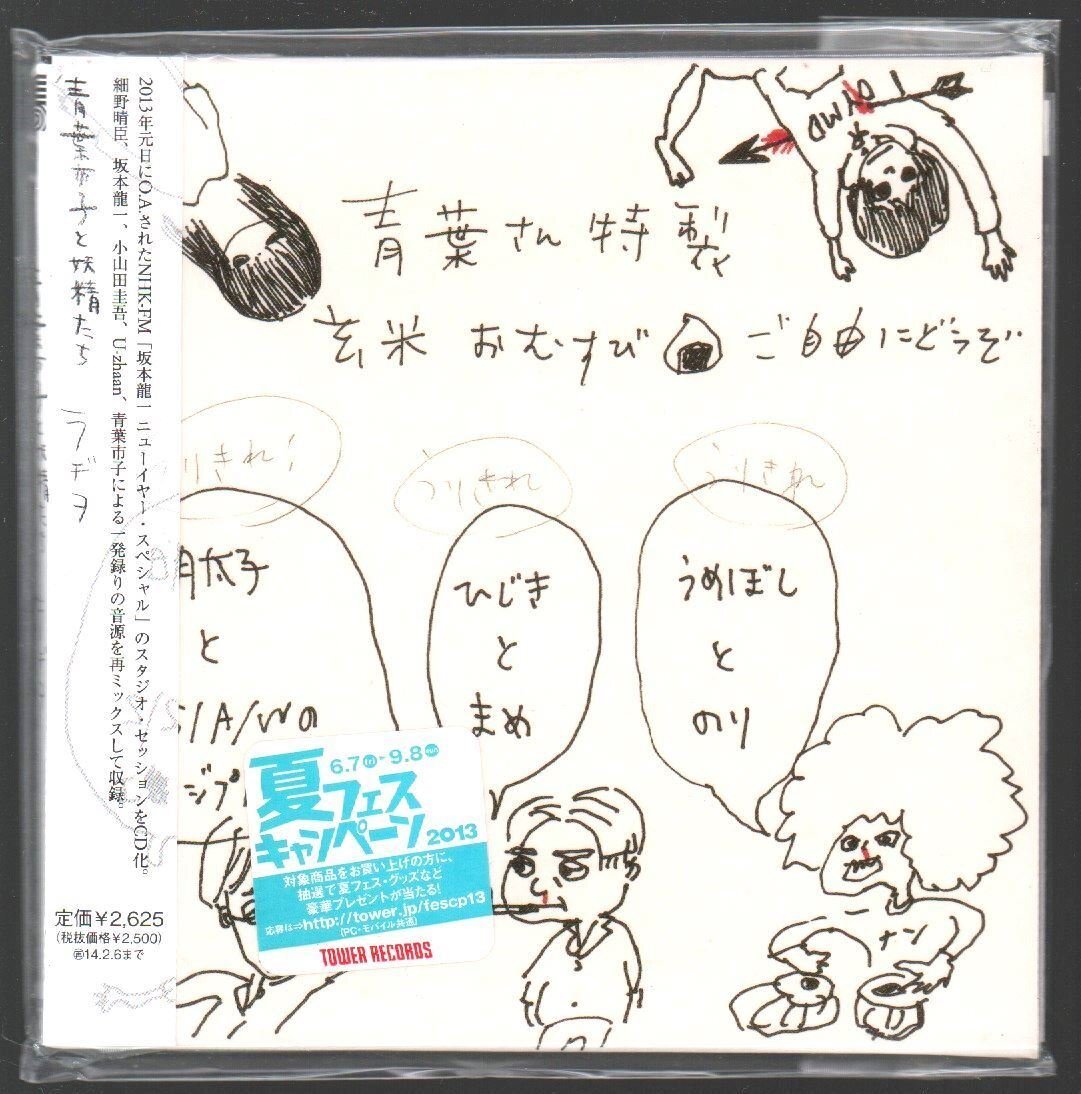 2013年元日にO.A.されたNHK-FM「坂本龍一 ニューイヤー・スペシャル」のスタジオ・セッションをCD化。
細野晴臣、坂本龍一、小山田圭吾、U-zhaan、青葉市子による一発録りの音源を再ミックスして収録。
青葉市子と妖精たち ラヂヲ
定価￥2,625
(税抜価格￥2,500)
14.2.6まで
青葉さん特製
玄米 おむすび ご自由にどうぞ
りきれ!
うりきれ
うりきれ
月太子
と
ひじき
と
まめ
うめぼし
と
のり
ナン
6.7 fri - 9.8 sun
夏フェス
キャンペーン 2013
対象商品をお買い上げの方に、
抽選で夏フェス・グッズなど
豪華プレゼントが当たる!
応募は⇒http://tower.jp/fescp13
(PC・モバイル共通)
TOWER RECORDS